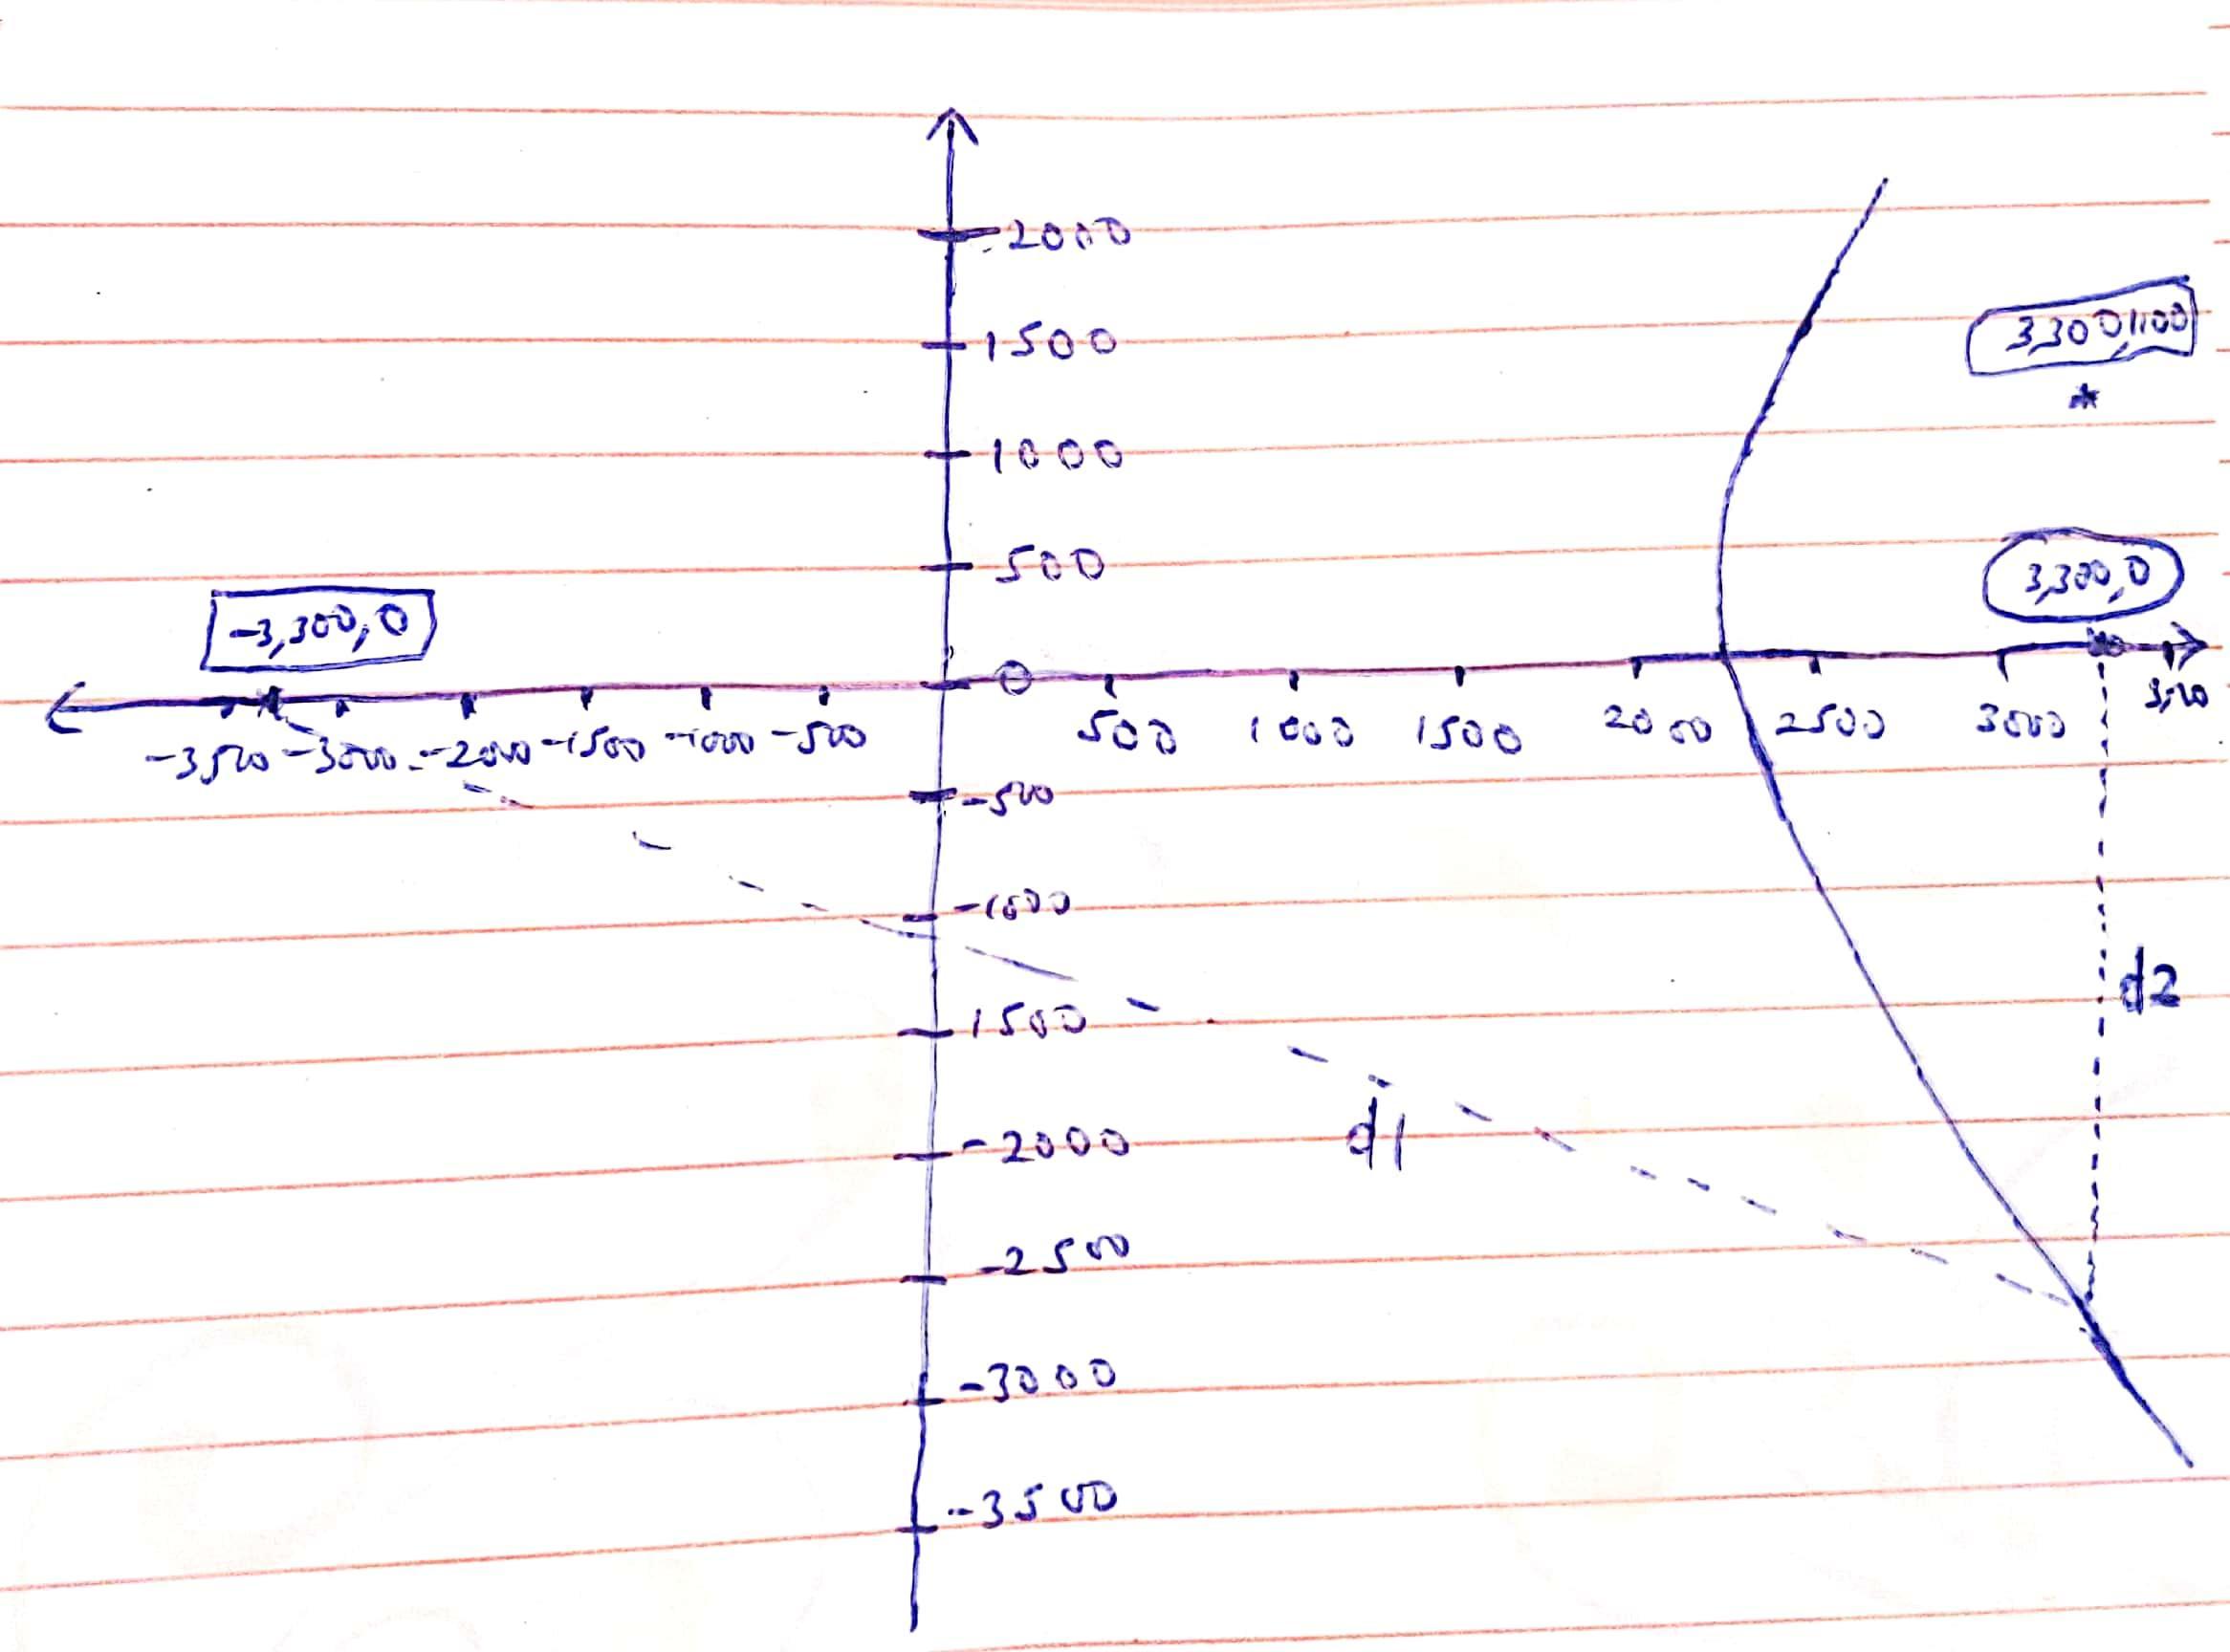 2000
3,300,1100
1500
*
1000
500
3,300,0
-3,300,0
0
-3500 -3000 -2000 -1500 -1000 -500 500 1000 1500 2000 2500 3000
-500
-1000
d2
1500
d1
-2000
-2500
-3000
-3500